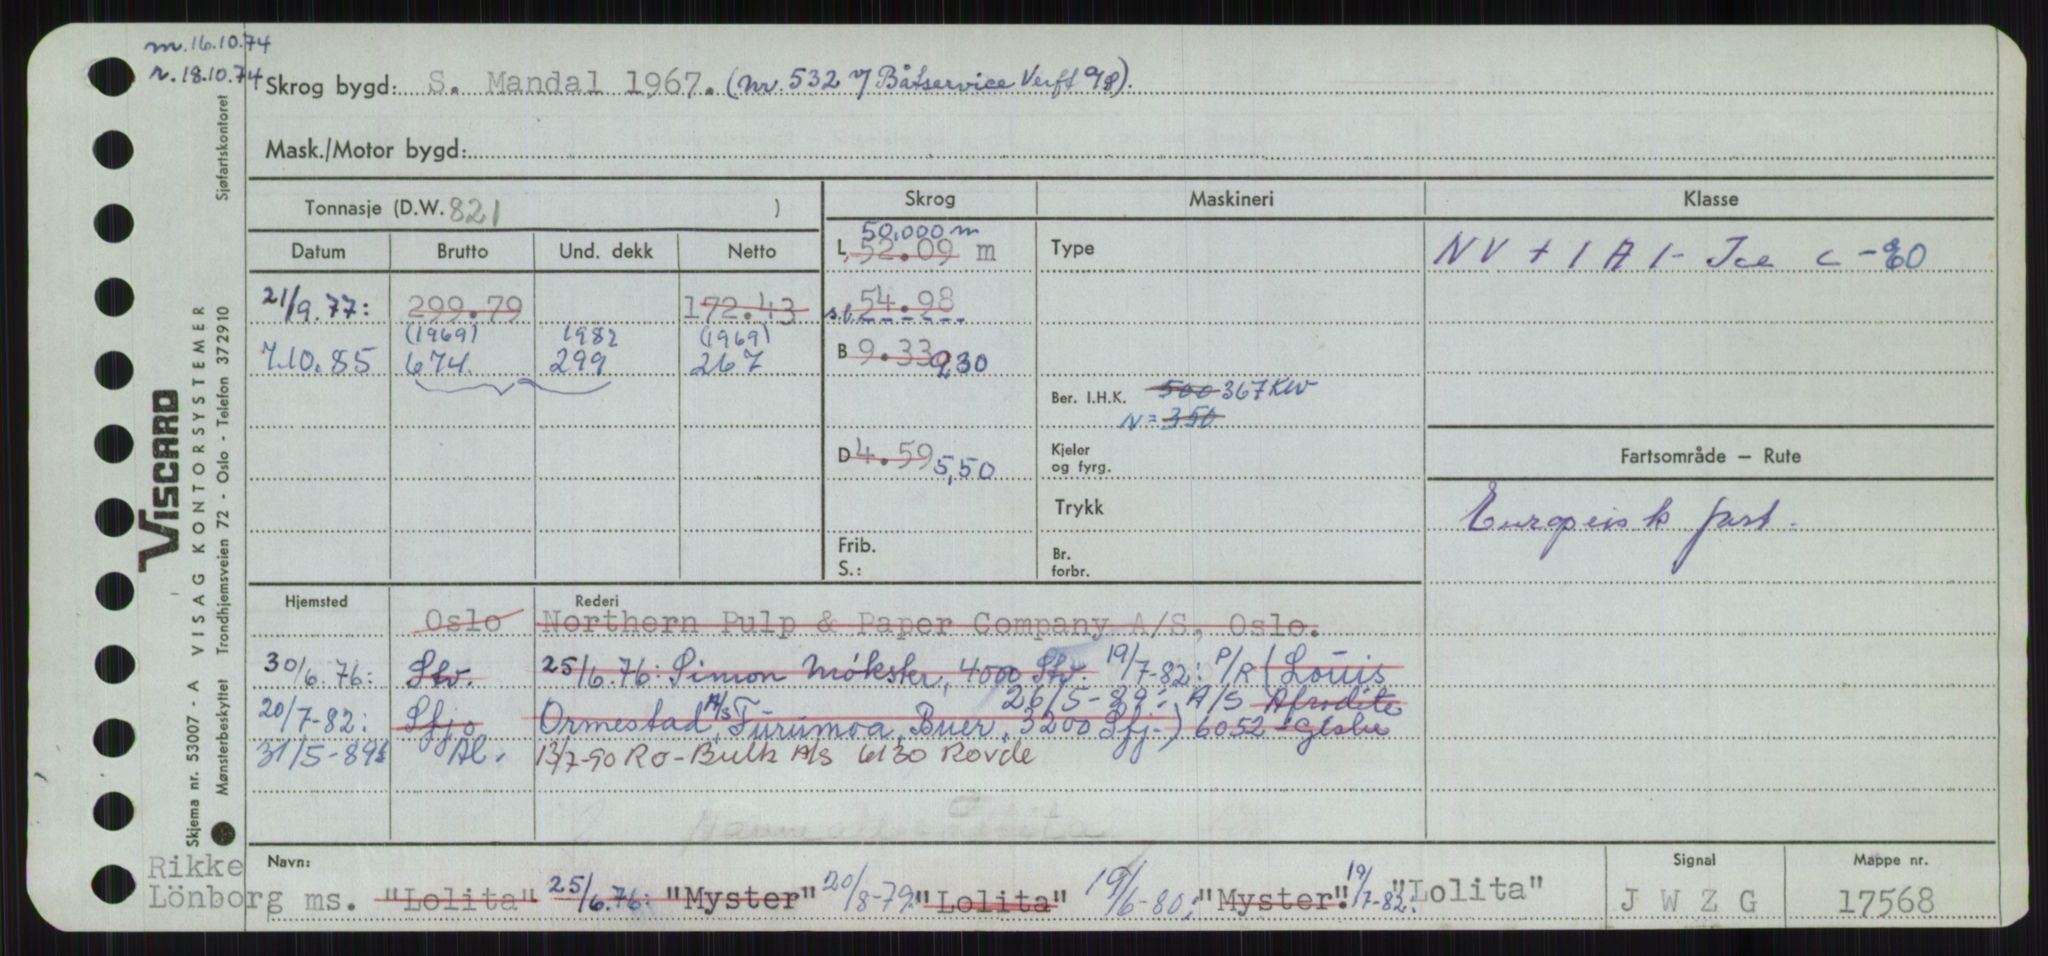 m. 16.10.74
r. 18.10.74
Skrog bygd: S. Mandal 1967. (nr. 532 v/ Båtservice Verft
Mask./Motor bygd:
Tonnasje (D.W. 821 )
Skrog
Maskineri
Klasse
Datum
Brutto
Und. dekk
Netto
21/9.77: 299.79 172.43
(1969) 1982 (1969)
7.10.85 674 299 267
50,000 m
L. 52.09 m
s.l. 54.98
B 9.33 9,30
D 4.59 5,50
Frib.
S.:
Type
Ber. I.H.K. 500 367 KW
N = 350
Kjeler
og fyrg.
Trykk
Br.
forbr.
NV + 1 A 1- Ice C -80
Fartsområde – Rute
Europeisk fart.
Hjemsted
Rederi
Oslo Northern Pulp & Paper Company A/S, Oslo.
30/6.76: Stv. 25/6.76: Simon Møkster, 4000 Stv. 19/7-82: P/R (Louis
26/5-89: A/S Afrodite
20/7-82: Sfjo Ormestad, A/S Furumoa, Buer, 3200 Sfj.) 6052
31/5-89: Ål. 13/7-90 Ro-Bulk A/S 6130 Rovde
Navn:
Rikke
Lönborg ms. "Lolita" 25/6.76: "Myster" 20/8-79: "Lolita" 19/6-80: "Myster". 19/7-82: "Lolita"
Signal
J W Z G
Mappe nr.
17568
VISCARD
Skjema nr. 53007 - A VISAG KONTORSYSTEMER
Mønsterbeskyttet Trondhjemsveien 72 - Oslo - Telefon 372910 Sjøfartskontoret